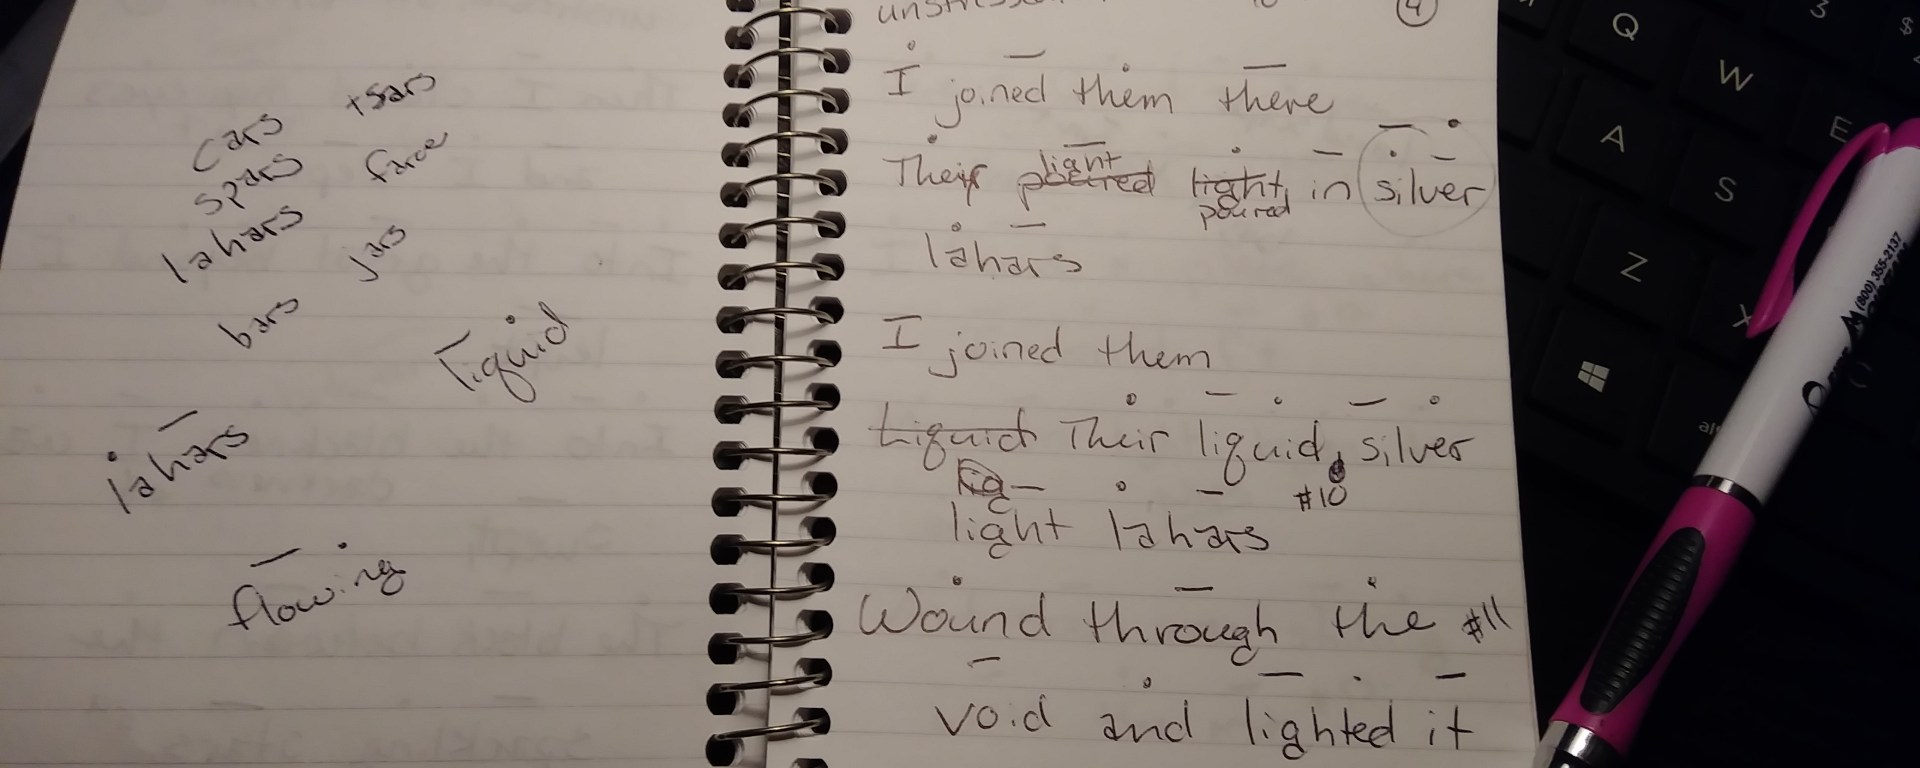 cars tsars
spars farce
lahars jars
bars
liquid
lahars
flowing
4
I joined them there
Their poured light light poured in silver
lahars
I joined them
Liquid Their liquid, silver
#10
light lahars
Wound through the #11
void and lighted it
Q W E
A S
Z X
(800) 355-2137